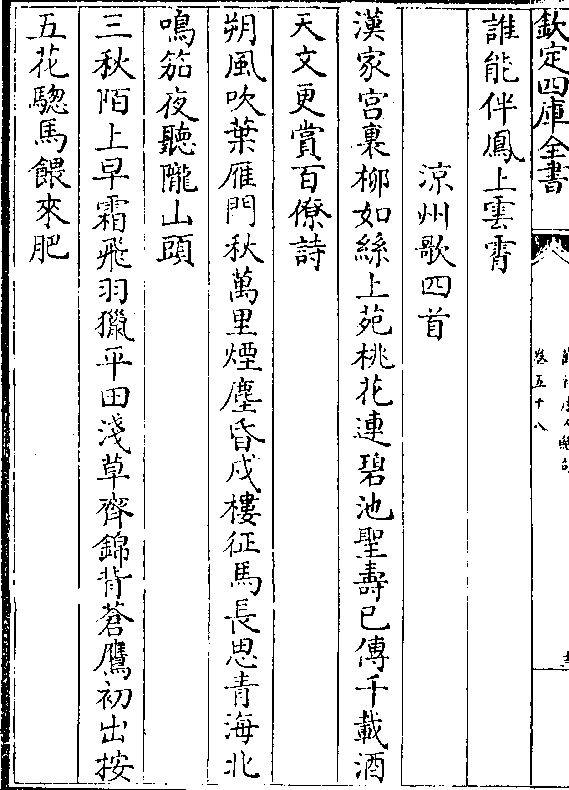 欽定四庫全書
卷五十八
誰能伴鳳上雲霄
涼州歌四首
漢家宫裏柳如絲上苑桃花連碧池聖壽已傳千載酒
天文更賞百僚詩
朔風吹葉雁門秋萬里煙塵昏戍樓征馬長思青海北
鳴笳夜聽隴山頭
三秋陌上早霜飛羽獵平田淺草齊錦背蒼鷹初出按
五花驄馬餵來肥